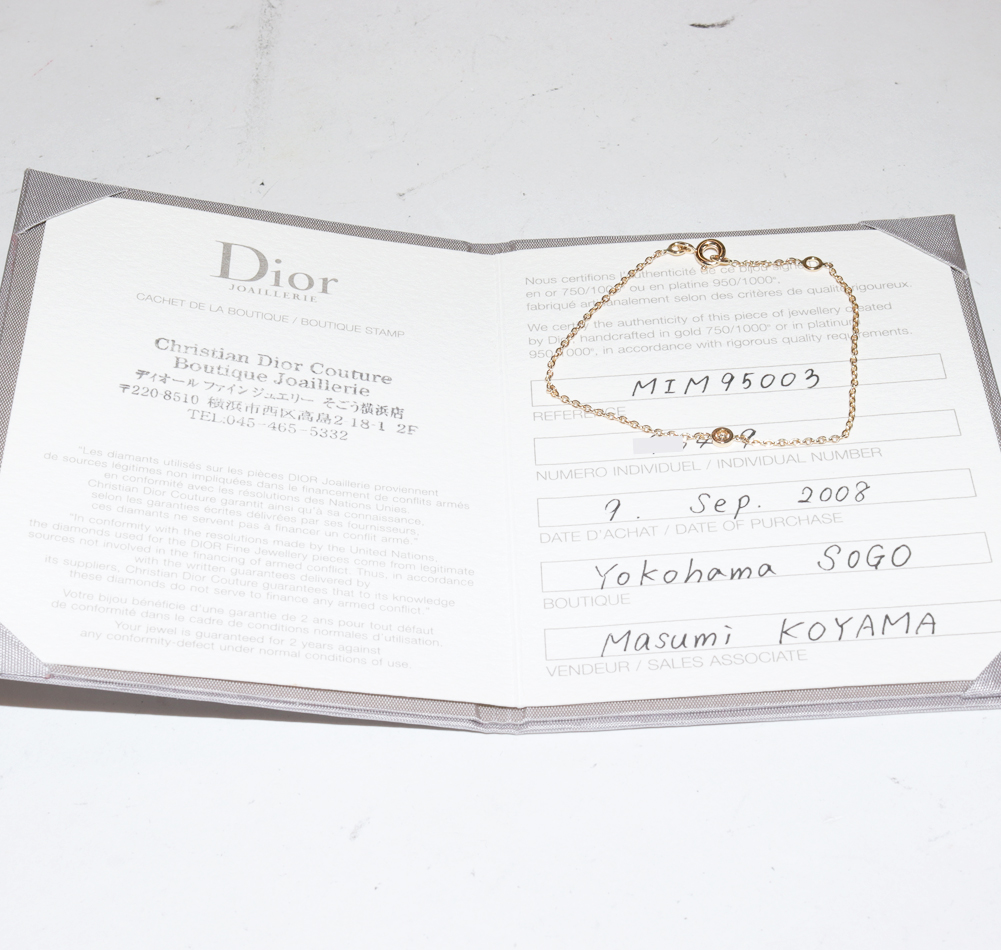 Dior
JOAILLERIE
CACHET DE LA BOUTIQUE / BOUTIQUE STAMP
Christian Dior Couture
Boutique Joaillerie
ディオール ファインジュエリー そごう横浜店
〒220-8510 横浜市西区高島2-18-1 2F
TEL.045-465-5332
"Les diamants utilisés sur les pièces DIOR Joaillerie proviennent
de sources légitimes non impliquées dans le financement de conflits armés
en conformité avec les résolutions des Nations Unies.
Christian Dior Couture garantit ainsi qu'à sa connaissance,
selon les garanties écrites délivrées par ses fournisseurs,
ces diamants ne servent pas à financer un conflit armé."
"In conformity with the resolutions made by the United Nations,
the diamonds used for the DIOR Fine Jewellery pieces come from legitimate
sources not involved in the financing of armed conflict. Thus, in accordance
with the written guarantees delivered by
its suppliers, Christian Dior Couture guarantees that to its knowledge
these diamonds do not serve to finance any armed conflict."
Votre bijou bénéficie d'une garantie de 2 ans pour tout défaut
de conformité dans le cadre de conditions normales d'utilisation.
Your jewel is guaranteed for 2 years against
any conformity-defect under normal conditions of use.
Nous certifions l'authenticité de ce bijou
en or 750/1000° ou en platine 950/1000°,
fabriqué selon des critères de qualité rigoureux.
We certify the authenticity of this piece of jewellery created
by Dior handcrafted in gold 750/1000° or in platinum
950/1000°, in accordance with rigorous quality requirements.
MIM95003
REFERENCE
NUMERO INDIVIDUEL / INDIVIDUAL NUMBER
9. Sep. 2008
DATE D'ACHAT / DATE OF PURCHASE
Yokohama SOGO
BOUTIQUE
Masumi KOYAMA
VENDEUR / SALES ASSOCIATE